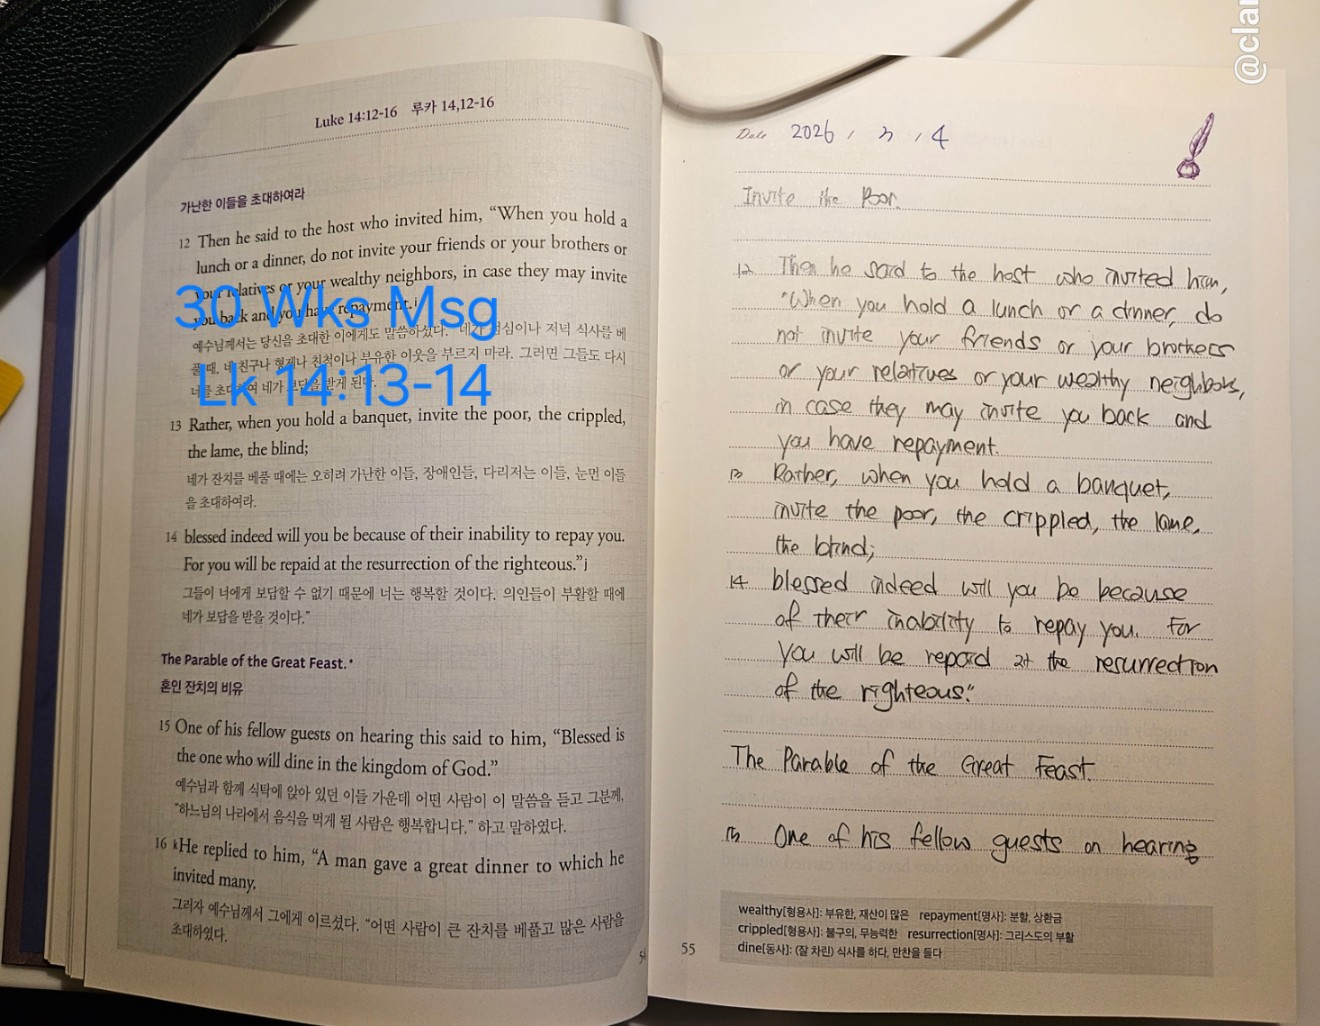 Luke 14:12-16 루카 14,12-16
가난한 이들을 초대하여라
12 Then he said to the host who invited him, “When you hold a
lunch or a dinner, do not invite your friends or your brothers or
your relatives or your wealthy neighbors, in case they may invite
you back and you have repayment.i
예수님께서는 당신을 초대한 이에게도 말씀하셨다. “네가 점심이나 저녁 식사를 베
풀 때, 네 친구나 형제나 친척이나 부유한 이웃을 부르지 마라. 그러면 그들도 다시
너를 초대하여 네가 보답을 받게 된다.
30 Wks Msg
Lk 14:13-14
13 Rather, when you hold a banquet, invite the poor, the crippled,
the lame, the blind;
네가 잔치를 베풀 때에는 오히려 가난한 이들, 장애인들, 다리저는 이들, 눈먼 이들
을 초대하여라.
14 blessed indeed will you be because of their inability to repay you.
For you will be repaid at the resurrection of the righteous.”j
그들이 너에게 보답할 수 없기 때문에 너는 행복할 것이다. 의인들이 부활할 때에
네가 보답을 받을 것이다.”
The Parable of the Great Feast.*
혼인 잔치의 비유
15 One of his fellow guests on hearing this said to him, “Blessed is
the one who will dine in the kingdom of God.”
예수님과 함께 식탁에 앉아 있던 이들 가운데 어떤 사람이 이 말씀을 듣고 그분께,
“하느님의 나라에서 음식을 먹게 될 사람은 행복합니다.” 하고 말하였다.
16 kHe replied to him, “A man gave a great dinner to which he
invited many.
그러자 예수님께서 그에게 이르셨다. “어떤 사람이 큰 잔치를 베풀고 많은 사람을
초대하였다.
@clar
Date 2026 / 3 / 4
Invite the Poor.
12 Then he said to the host who invited him,
“When you hold a lunch or a dinner, do
not invite your friends or your brothers
or your relatives or your wealthy neighbors,
in case they may invite you back and
you have repayment.
13 Rather, when you hold a banquet,
invite the poor, the crippled, the lame,
the blind;
14 blessed indeed will you be because
of their inability to repay you. For
you will be repaid at the resurrection
of the righteous.”
The Parable of the Great Feast.
15 One of his fellow guests on hearing
wealthy[형용사]: 부유한, 재산이 많은 repayment[명사]: 분할, 상환금
crippled[형용사]: 불구의, 무능력한 resurrection[명사]: 그리스도의 부활
dine[동사]: (잘 차린) 식사를 하다, 만찬을 들다
55